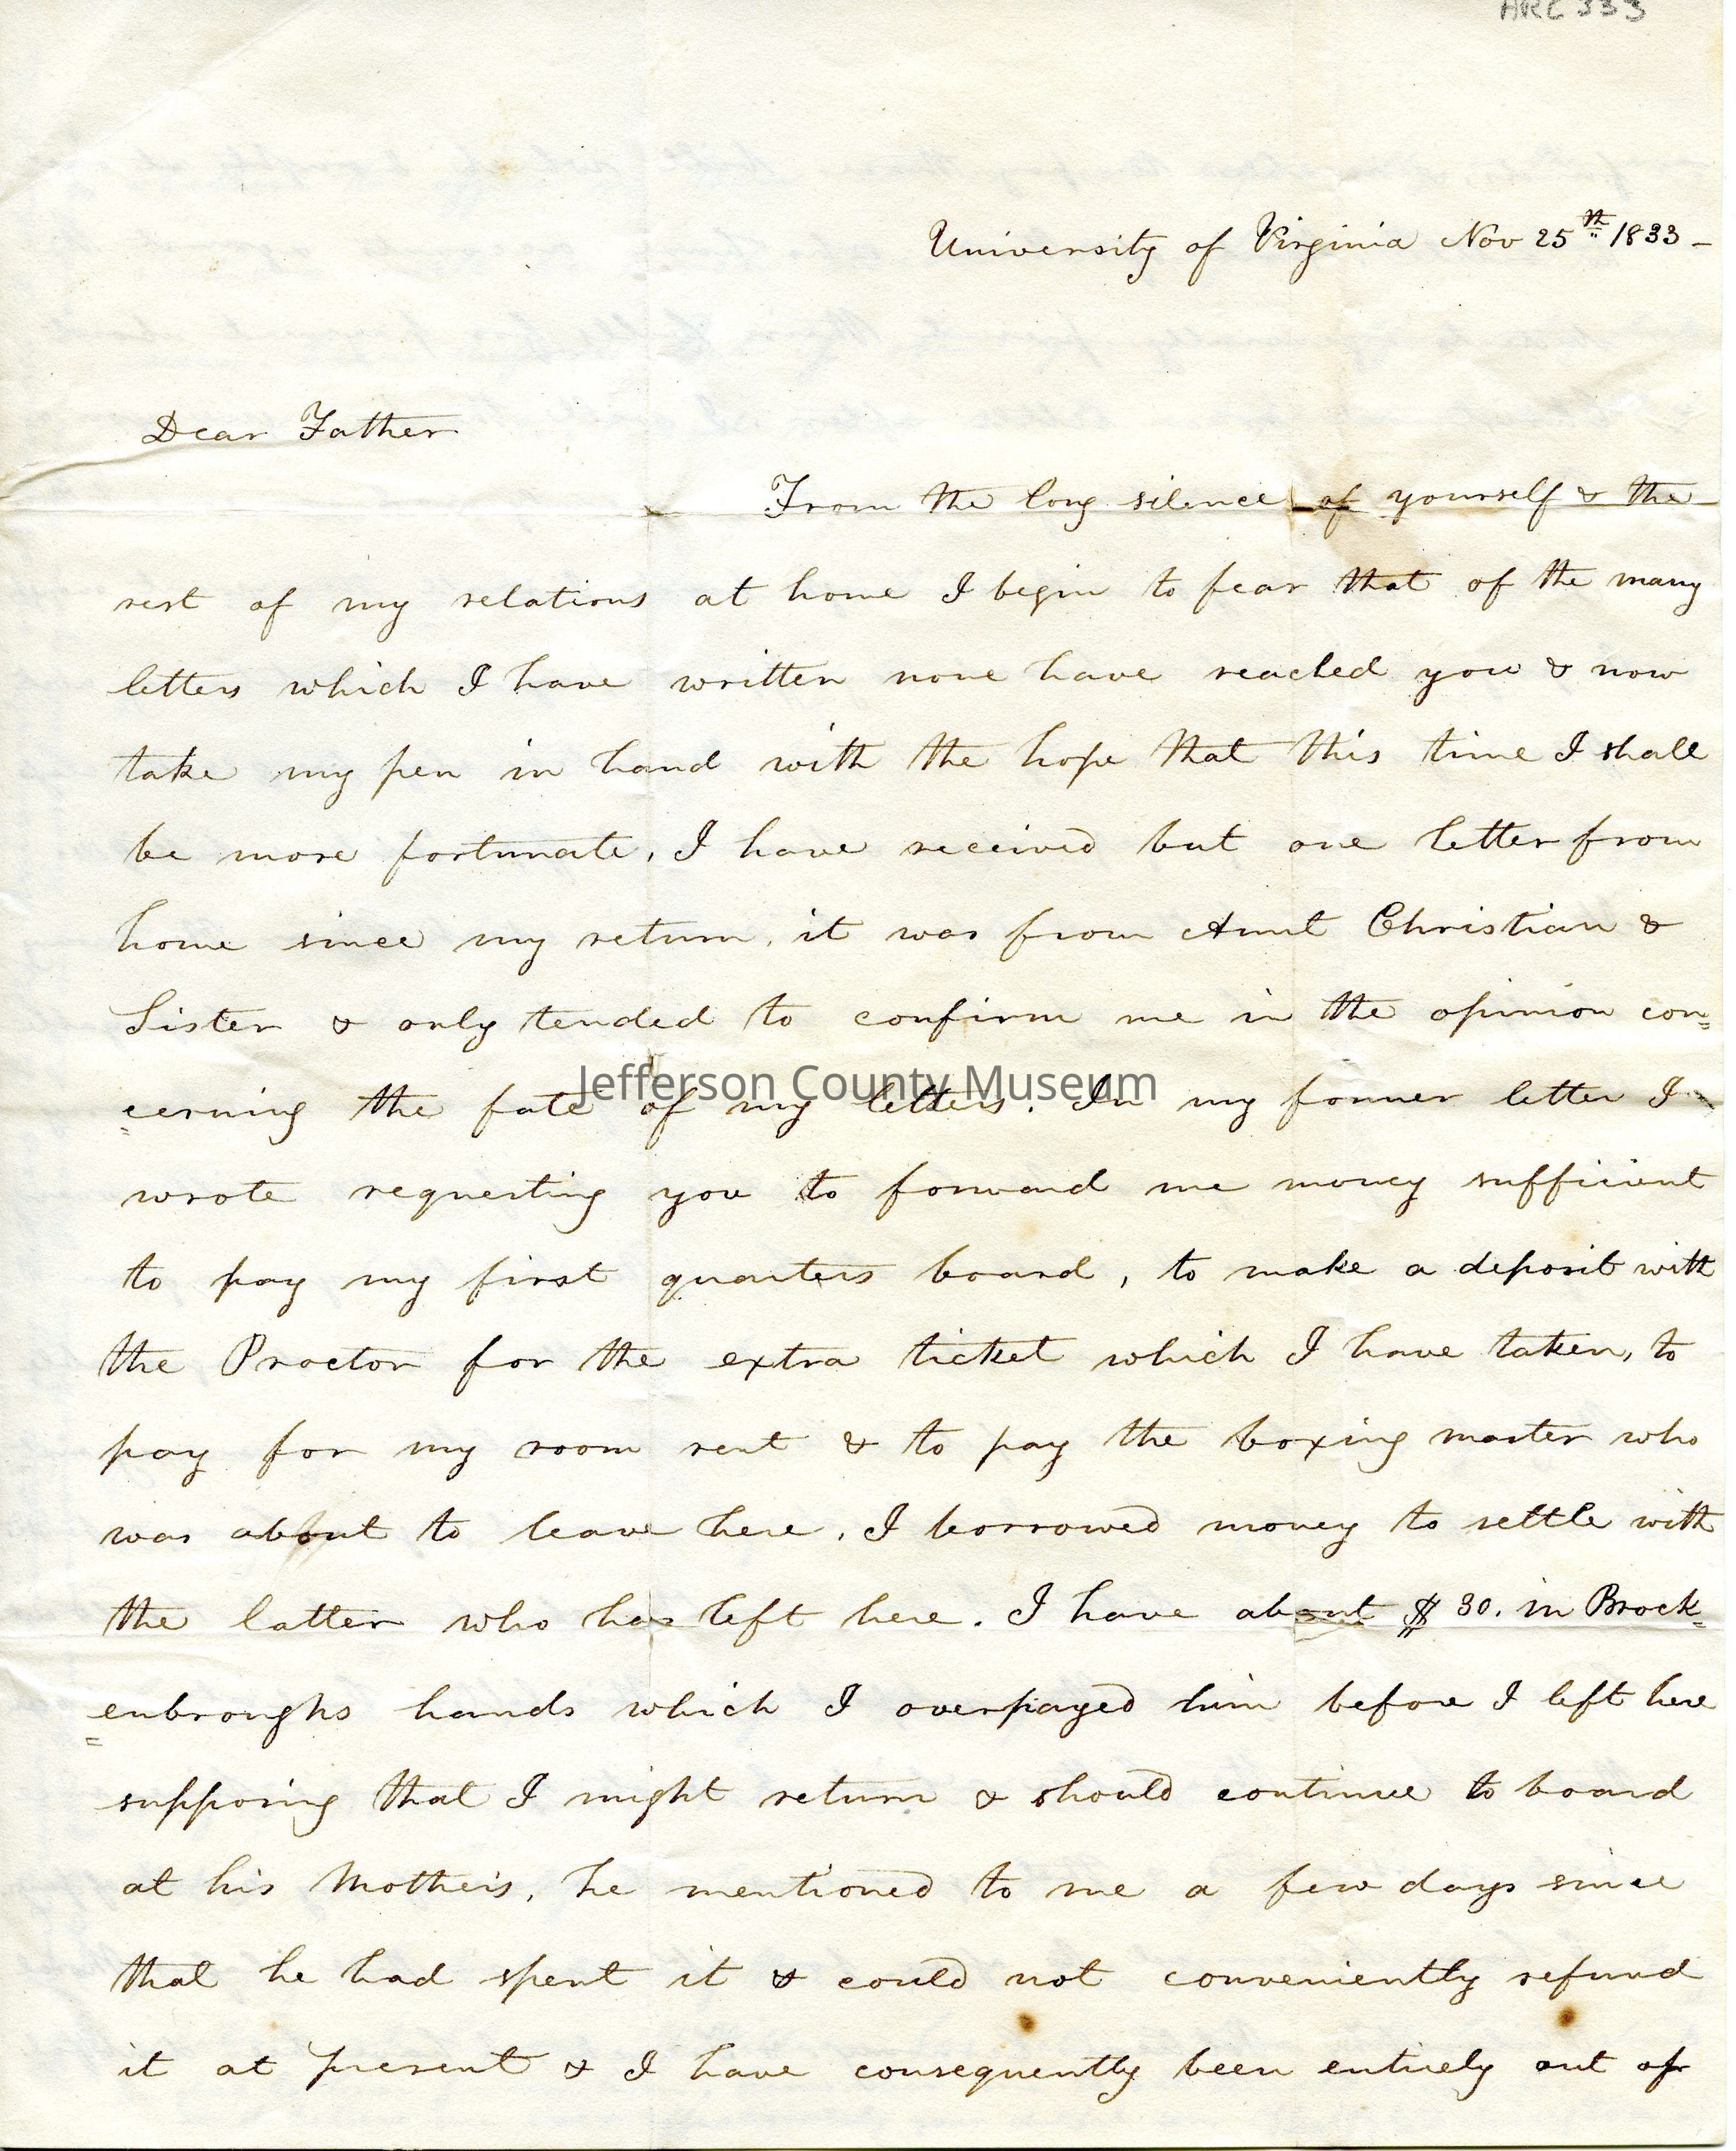 ARC 333
University of Virginia Nov 25th 1833 -
Dear Father
From the long silence of yourself & the
rest of my relations at home I begin to fear that of the many
letters which I have written none have reached you & now
take my pen in hand with the hope that this time I shall
be more fortunate. I have received but one letter from
home since my return, it was from Aunt Christian &
Sister & only tended to confirm me in the opinion con=
=cerning the fate of my letters. In my former letter I
Jefferson County Museum
wrote requesting you to forward me money sufficient
to pay my first quarters board, to make a deposit with
the Proctor for the extra ticket which I have taken, to
pay for my room rent & to pay the boxing master who
was about to leave here. I borrowed money to settle with
the latter who has left here. I have about $30. in Brock=
=enbroughs hands which I overpayed him before I left here
supposing that I might return & should continue to board
at his Mothers, he mentioned to me a few days since
that he had spent it & could not conveniently refund
it at present & I have consequently been entirely out of